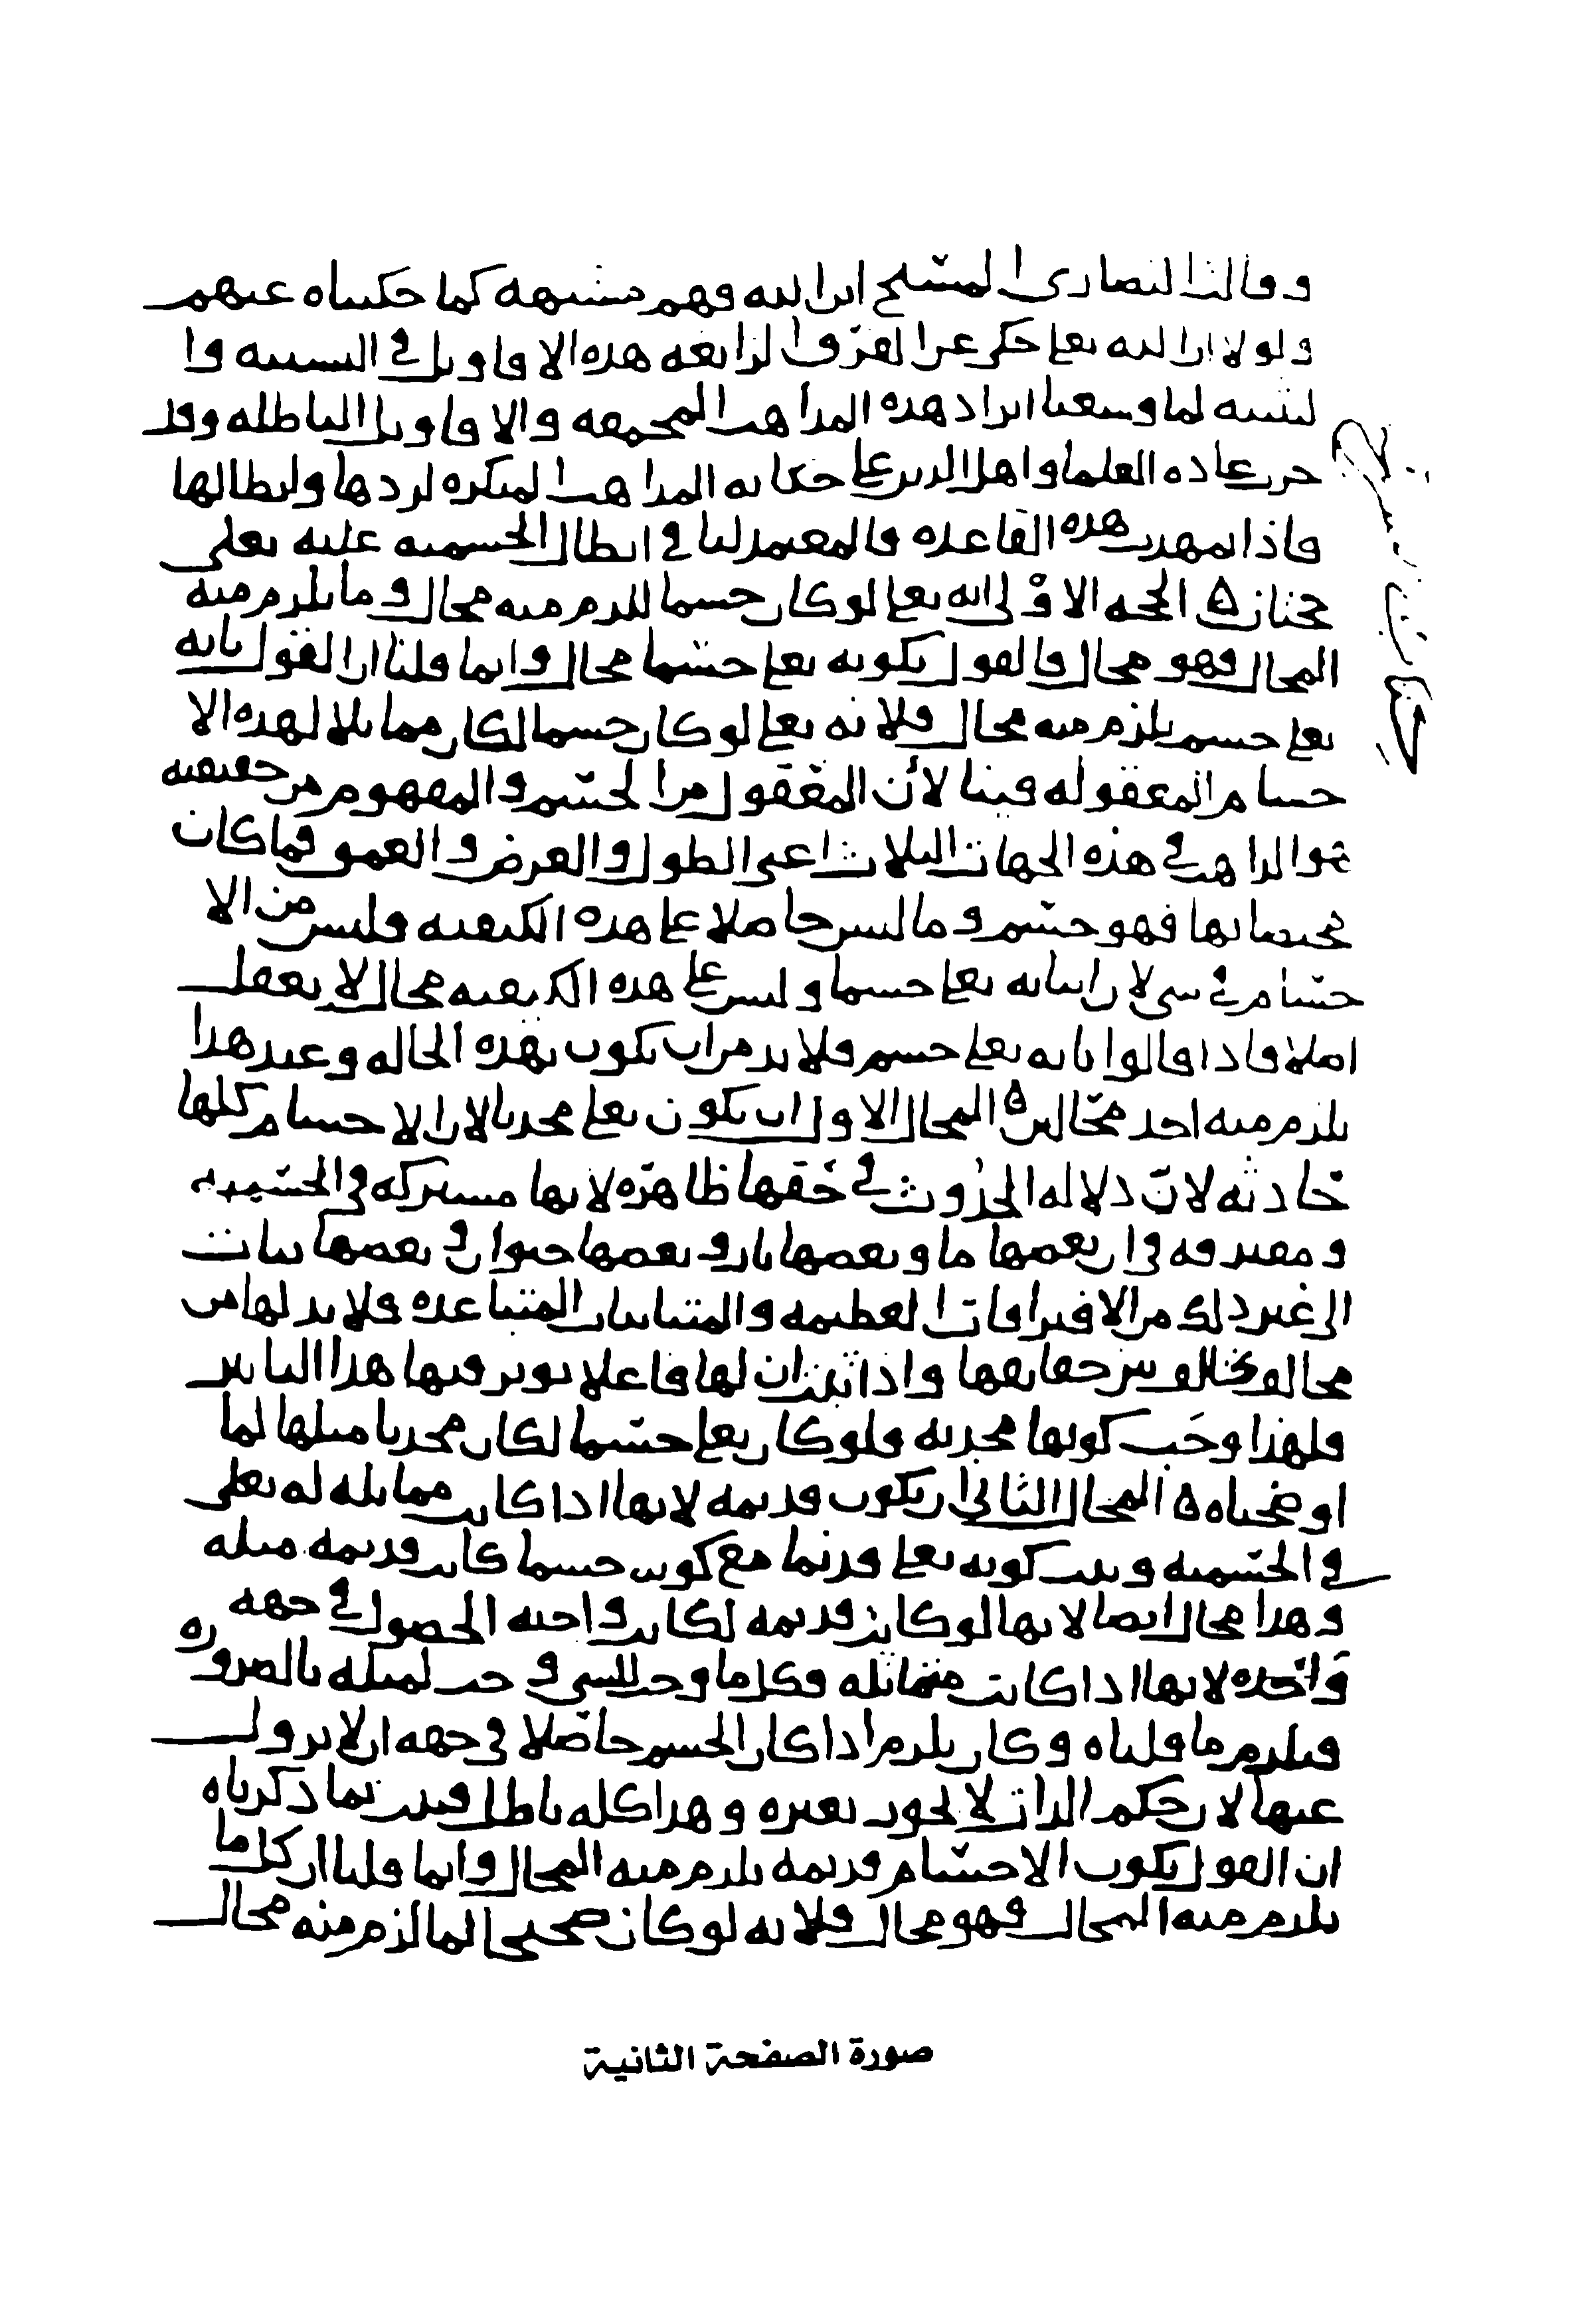 وقالت النصارى المسيح ابن الله وهم مشبهه كما حكيناه عنهم
ولولا ان الله تعلى حكى عن الفرق الزايغه هذه الاقاويل في التشبيه وا
لتشبيه لما وسعنا ايراد هذه المذاهب المجمعه والاقاويل الباطله وقد
جرت عاده العلما واهل الدين على حكايه المذاهب المنكره لردها وابطالها
فاذا تمهدت هذه القاعده فالمعتمد لنا في ابطال الجسميه عليه تعلى
حجتان الحجه الاولى انه تعلى لو كان جسما للزم منه محال وما يلزم منه
المحال فهو محال فالقول بكونه تعلى جسما محال وانما قلنا ان القول بانه
تعلى جسم يلزم منه محال فلانه تعلى لو كان جسما لكان مماثلا لهذه الا
جسام المعقوله فينا لأن المعقول من الجسم والمفهوم من حقيقته
هو الذاهب في هذه الجهات الثلاث اعنى الطول والعرض والعمق فما كان
مختصا بها فهو جسم وما ليس حاصلا على هذه الكيفيه فليس من الا
جسام في شى لان اثباته تعلى جسما وليس على هذه الكيفيه محال لا يعقل
اصلا فاذا قالوا بانه تعلى جسم فلا بد من ان يكون بهذه الحاله وعند هذا
يلزم منه احد محالين المحال الاول ان يكون تعلى محدثا لان الاجسام كلها
حادثه لان دلاله الحدوث في حقها ظاهره لانها مشتركه في الجسميه
ومفترقه في ان بعضها ما وبعضها نار وبعضها حيوان وبعضها نبات
الى غير ذلك من الافتراقات العظيمه والمتباينات المتباعده فلا بد لها من
مخالف يخالف بين حقايقها واذا ثبت ان لها فاعلا يوثر فيها هذا التاثير
فلهذا وجب كونها محدثه ولو كان تعلى جسما لكان محدثا مثلها لما
اوضحناه المحال الثانى ان يكون قديمه لانها اذا كانت مماثله له تعلى
في الجسميه وثبت كونه تعلى قديما مع كونه جسما كانت قديمه مثله
وهذا محال ايضا لانها لو كانت قديمه لكانت واجبه الحصول في جهه
واحده لانها اذا كانت متماثله وكل ما وجب للشى وجب لمثله بالضروره
فيلزم ما قلناه وكان يلزم اذا كان الجسم حاصلا في جهه ان لا يزول
عنها لان حكم الذات لا يجوز تغيره وهذا كله باطل فثبت بما ذكرناه
ان القول بكون الاجسام قديمه يلزم منه المحال وانما قلنا ان كل ما
يلزم منه المحال فهو محال فلانه لو كان صحيحا لما لزم منه محال
صورة الصفحة الثانية